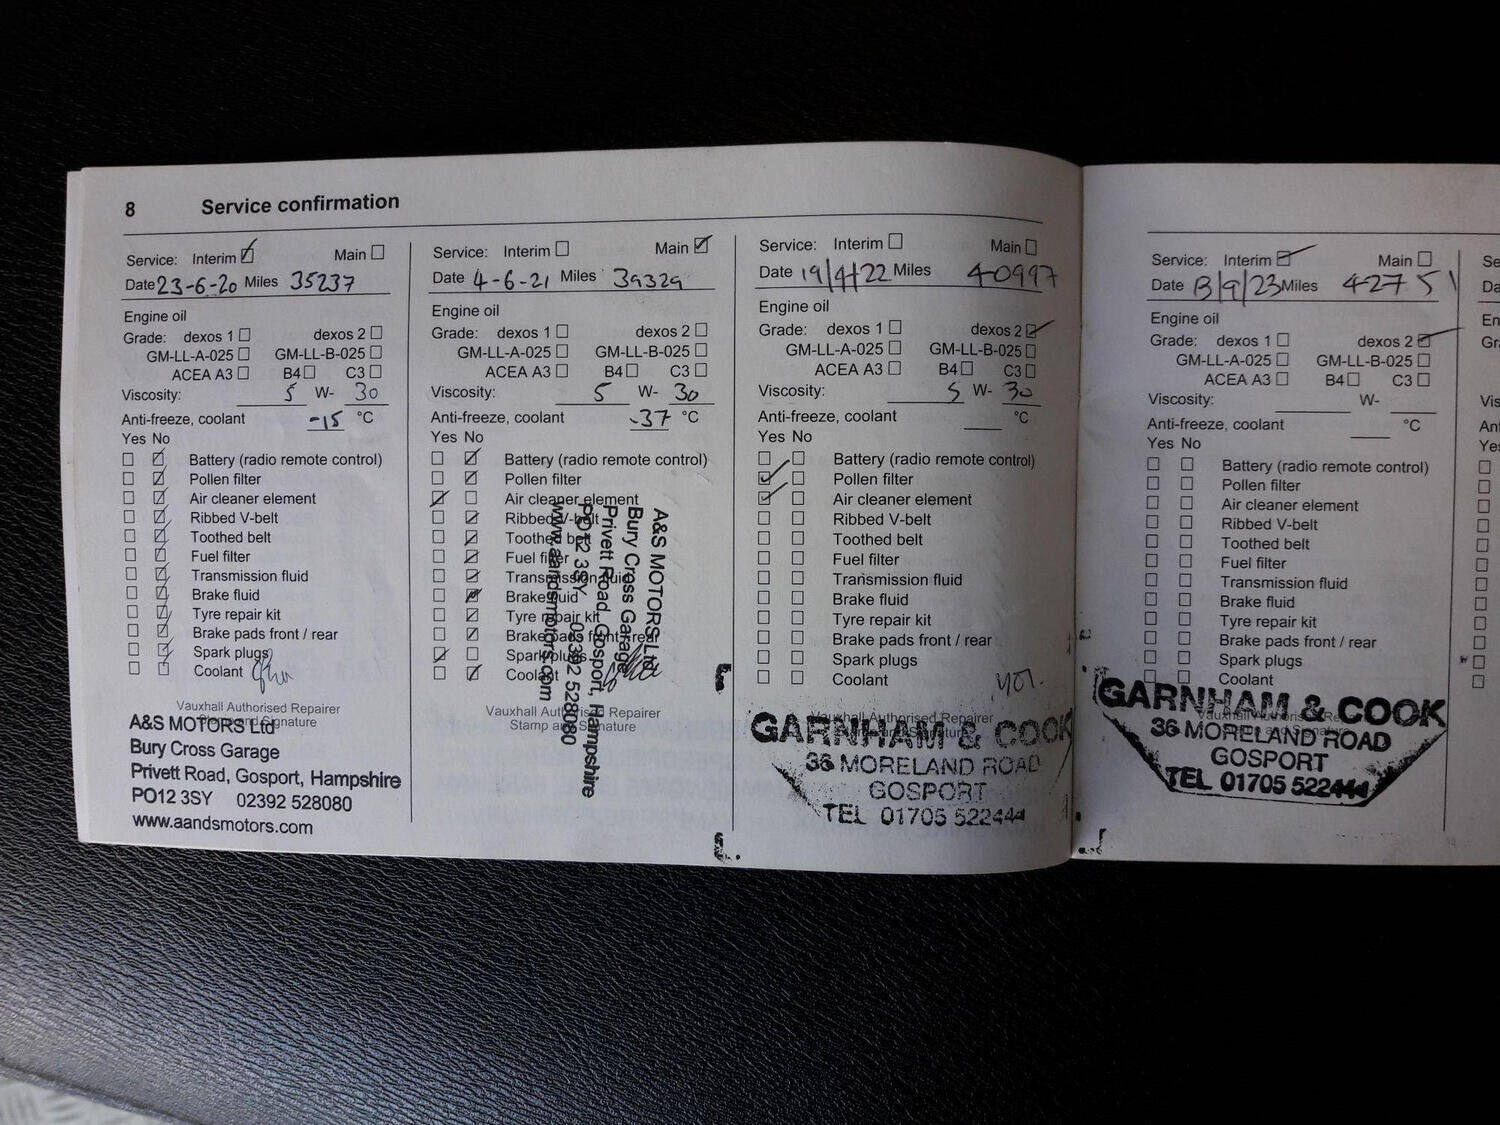 8 Service confirmation
Service: Interim Main
Date 23-6-20 Miles 35237
Engine oil
Grade: dexos 1 dexos 2
GM-LL-A-025 GM-LL-B-025
ACEA A3 B4 C3
Viscosity: 5 W- 30
Anti-freeze, coolant -15 °C
Yes No
Battery (radio remote control)
Pollen filter
Air cleaner element
Ribbed V-belt
Toothed belt
Fuel filter
Transmission fluid
Brake fluid
Tyre repair kit
Brake pads front / rear
Spark plugs
Coolant
Vauxhall Authorised Repairer
Stamp and Signature
A&S MOTORS Ltd
Bury Cross Garage
Privett Road, Gosport, Hampshire
PO12 3SY 02392 528080
www.aandsmotors.com
Service: Interim Main
Date 4-6-21 Miles 39329
Engine oil
Grade: dexos 1 dexos 2
GM-LL-A-025 GM-LL-B-025
ACEA A3 B4 C3
Viscosity: 5 W- 30
Anti-freeze, coolant -37 °C
Yes No
Battery (radio remote control)
Pollen filter
Air cleaner element
Ribbed V-belt
Toothed belt
Fuel filter
Transmission fluid
Brake fluid
Tyre repair kit
Brake pads front / rear
Spark plugs
Coolant
Vauxhall Authorised Repairer
Stamp and Signature
A&S MOTORS Ltd
Bury Cross Garage
Privett Road, Gosport, Hampshire
PO12 3SY 02392 528080
www.aandsmotors.com
Service: Interim Main
Date 19/4/22 Miles 40997
Engine oil
Grade: dexos 1 dexos 2
GM-LL-A-025 GM-LL-B-025
ACEA A3 B4 C3
Viscosity: 5 W- 30
Anti-freeze, coolant °C
Yes No
Battery (radio remote control)
Pollen filter
Air cleaner element
Ribbed V-belt
Toothed belt
Fuel filter
Transmission fluid
Brake fluid
Tyre repair kit
Brake pads front / rear
Spark plugs
Coolant
Vauxhall Authorised Repairer
GARNHAM & COOK
36 MORELAND ROAD
GOSPORT
TEL 01705 522444
Service: Interim Main
Date 13/9/23 Miles 42751
Engine oil
Grade: dexos 1 dexos 2
GM-LL-A-025 GM-LL-B-025
ACEA A3 B4 C3
Viscosity: W-
Anti-freeze, coolant °C
Yes No
Battery (radio remote control)
Pollen filter
Air cleaner element
Ribbed V-belt
Toothed belt
Fuel filter
Transmission fluid
Brake fluid
Tyre repair kit
Brake pads front / rear
Spark plugs
Coolant
GARNHAM & COOK
36 MORELAND ROAD
GOSPORT
TEL 01705 522444